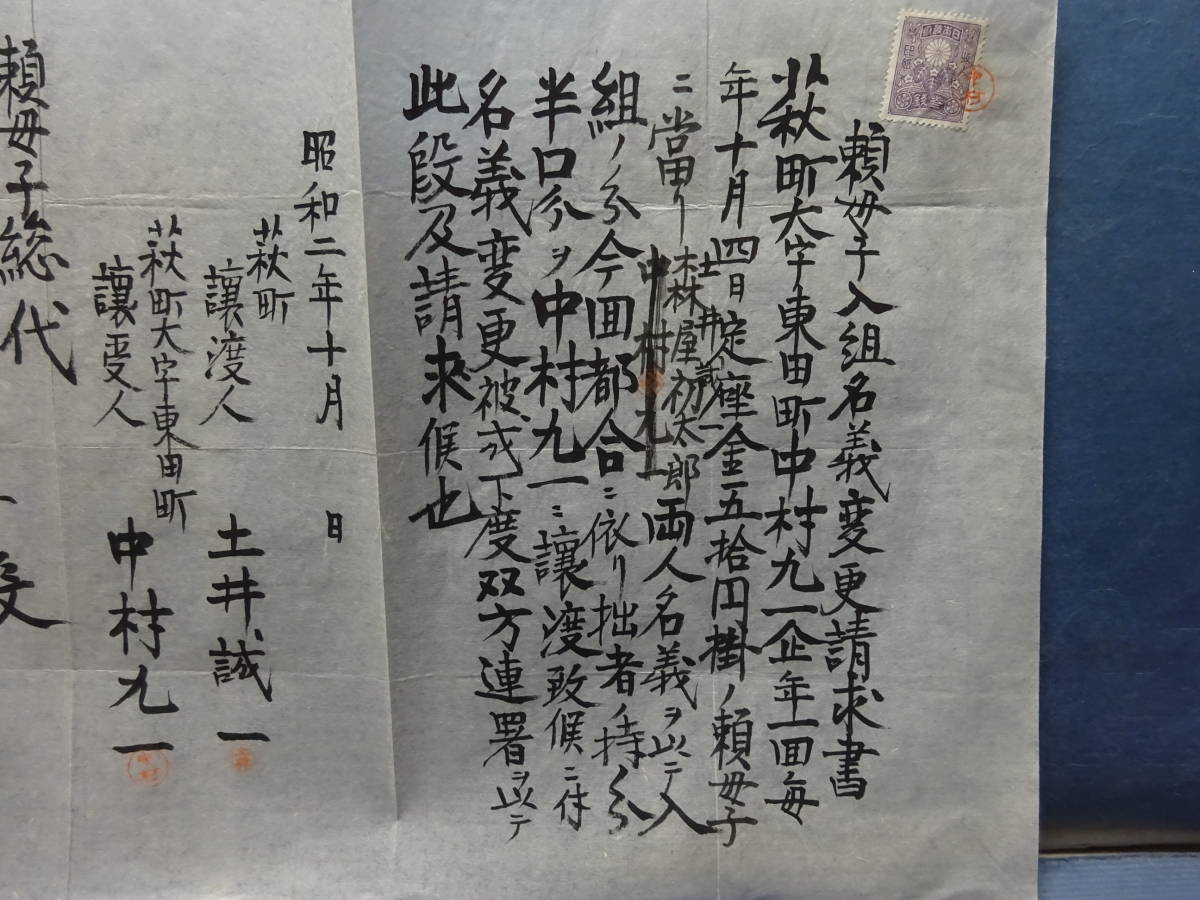 頼母子入組名義変更請求書
萩町大字東田町中村九一企年一回毎
年十月四日掟座金五拾円掛ノ頼母子
土井誠一
ニ當リ森屋初太郎両人名義ヲ以テ入
中村九一
組ノ分今回都合ニ依リ拙者ノ持分
半口分ヲ中村九一ニ譲渡致候ニ付
名義変更被成下度双方連署ヲ以テ
此段及請求候也
昭和二年十月 日
萩町
譲渡人 土井誠一
萩町大字東田町
譲受人 中村九一
頼母子総代